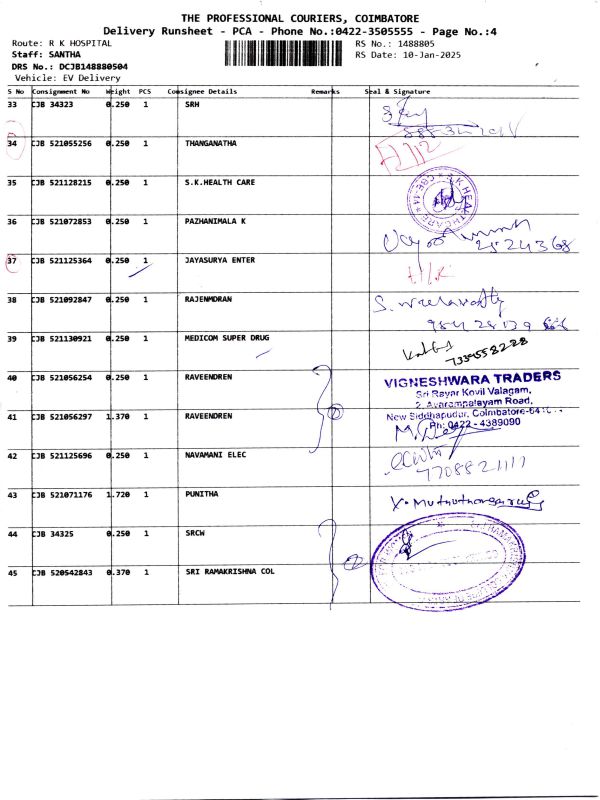 THE PROFESSIONAL COURIERS, COIMBATORE
Delivery Runsheet - PCA - Phone No.:0422-3505555 - Page No.:4
Route: R K HOSPITAL
Staff: SANTHA
DRS No.: DCJB148880504
Vehicle: EV Delivery
RS No.: 1488805
RS Date: 10-Jan-2025
S No Consignment No Weight PCS Consignee Details Remarks Seal & Signature
33 CJB 34323 0.250 1 SRH
34 CJB 521055256 0.250 1 THANGANATHA
35 CJB 521128215 0.250 1 S.K.HEALTH CARE
36 CJB 521072853 0.250 1 PAZHANIMALA K
37 CJB 521125364 0.250 1 JAYASURYA ENTER
38 CJB 521092847 0.250 1 RAJENMDRAN
39 CJB 521130921 0.250 1 MEDICOM SUPER DRUG
7339558228
40 CJB 521056254 0.250 1 RAVEENDREN
VIGNESHWARA TRADERS
Sri Rayar Kovil Valagam,
2, Avarampalayam Road,
41 CJB 521056297 1.370 1 RAVEENDREN 2
New Siddhapudur, Coimbatore-641
Ph: 0422 - 4389090
42 CJB 521125696 0.250 1 NAVAMANI ELEC
7708821111
43 CJB 521071176 1.720 1 PUNITHA
44 CJB 34325 0.250 1 SRCW
45 CJB 520542843 0.370 1 SRI RAMAKRISHNA COL 2